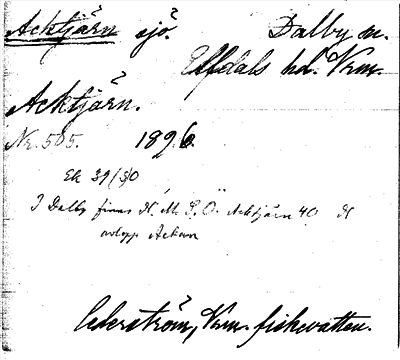 Acktjärn sjö. Dalby sn.
Elfdals hd. Vrm.
Acktjärn.
Nr. 505. 1896.
Ek 39/30
I Dalby finns N. M. S. Ö. Acktjärn 40
avlopp Ackan
Cederström, Vrm. fiskevatten.